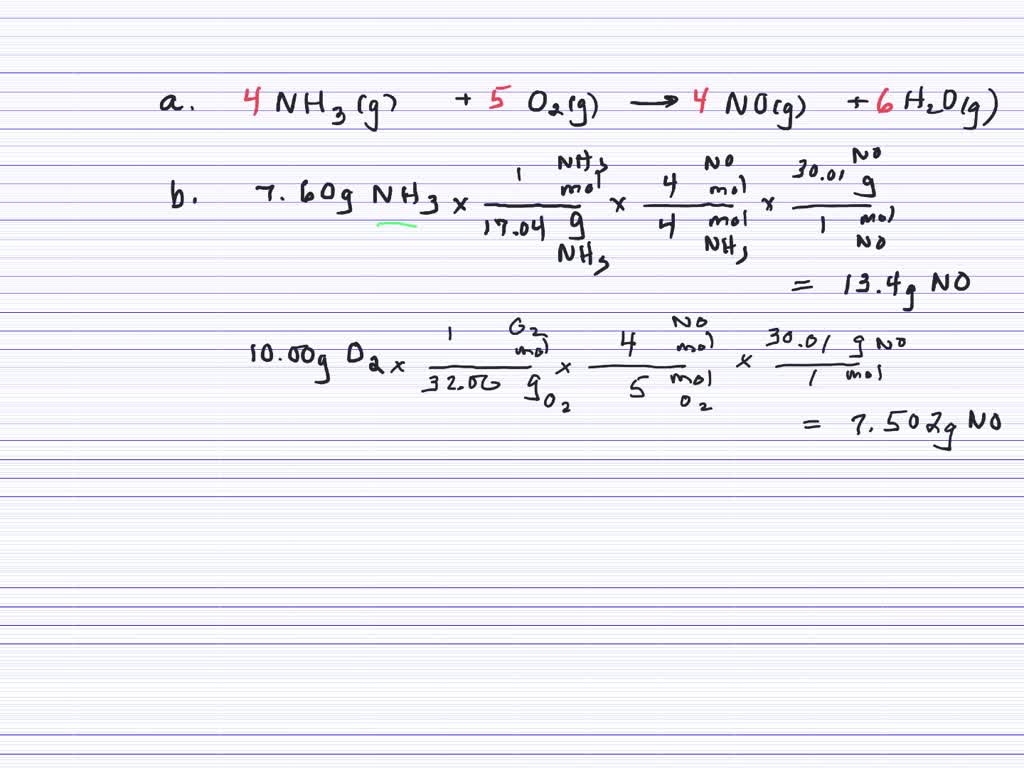 a. 4 NH3(g) + 5 O2(g) → 4 NO(g) + 6 H2O(g)
b. 7.60g NH3 × 1 mol NH3 / 17.04 g NH3 × 4 mol NO / 4 mol NH3 × 30.01 g NO / 1 mol NO
= 13.4g NO
10.00g O2 × 1 mol O2 / 32.00 g O2 × 4 mol NO / 5 mol O2 × 30.01 g NO / 1 mol
= 7.502g NO